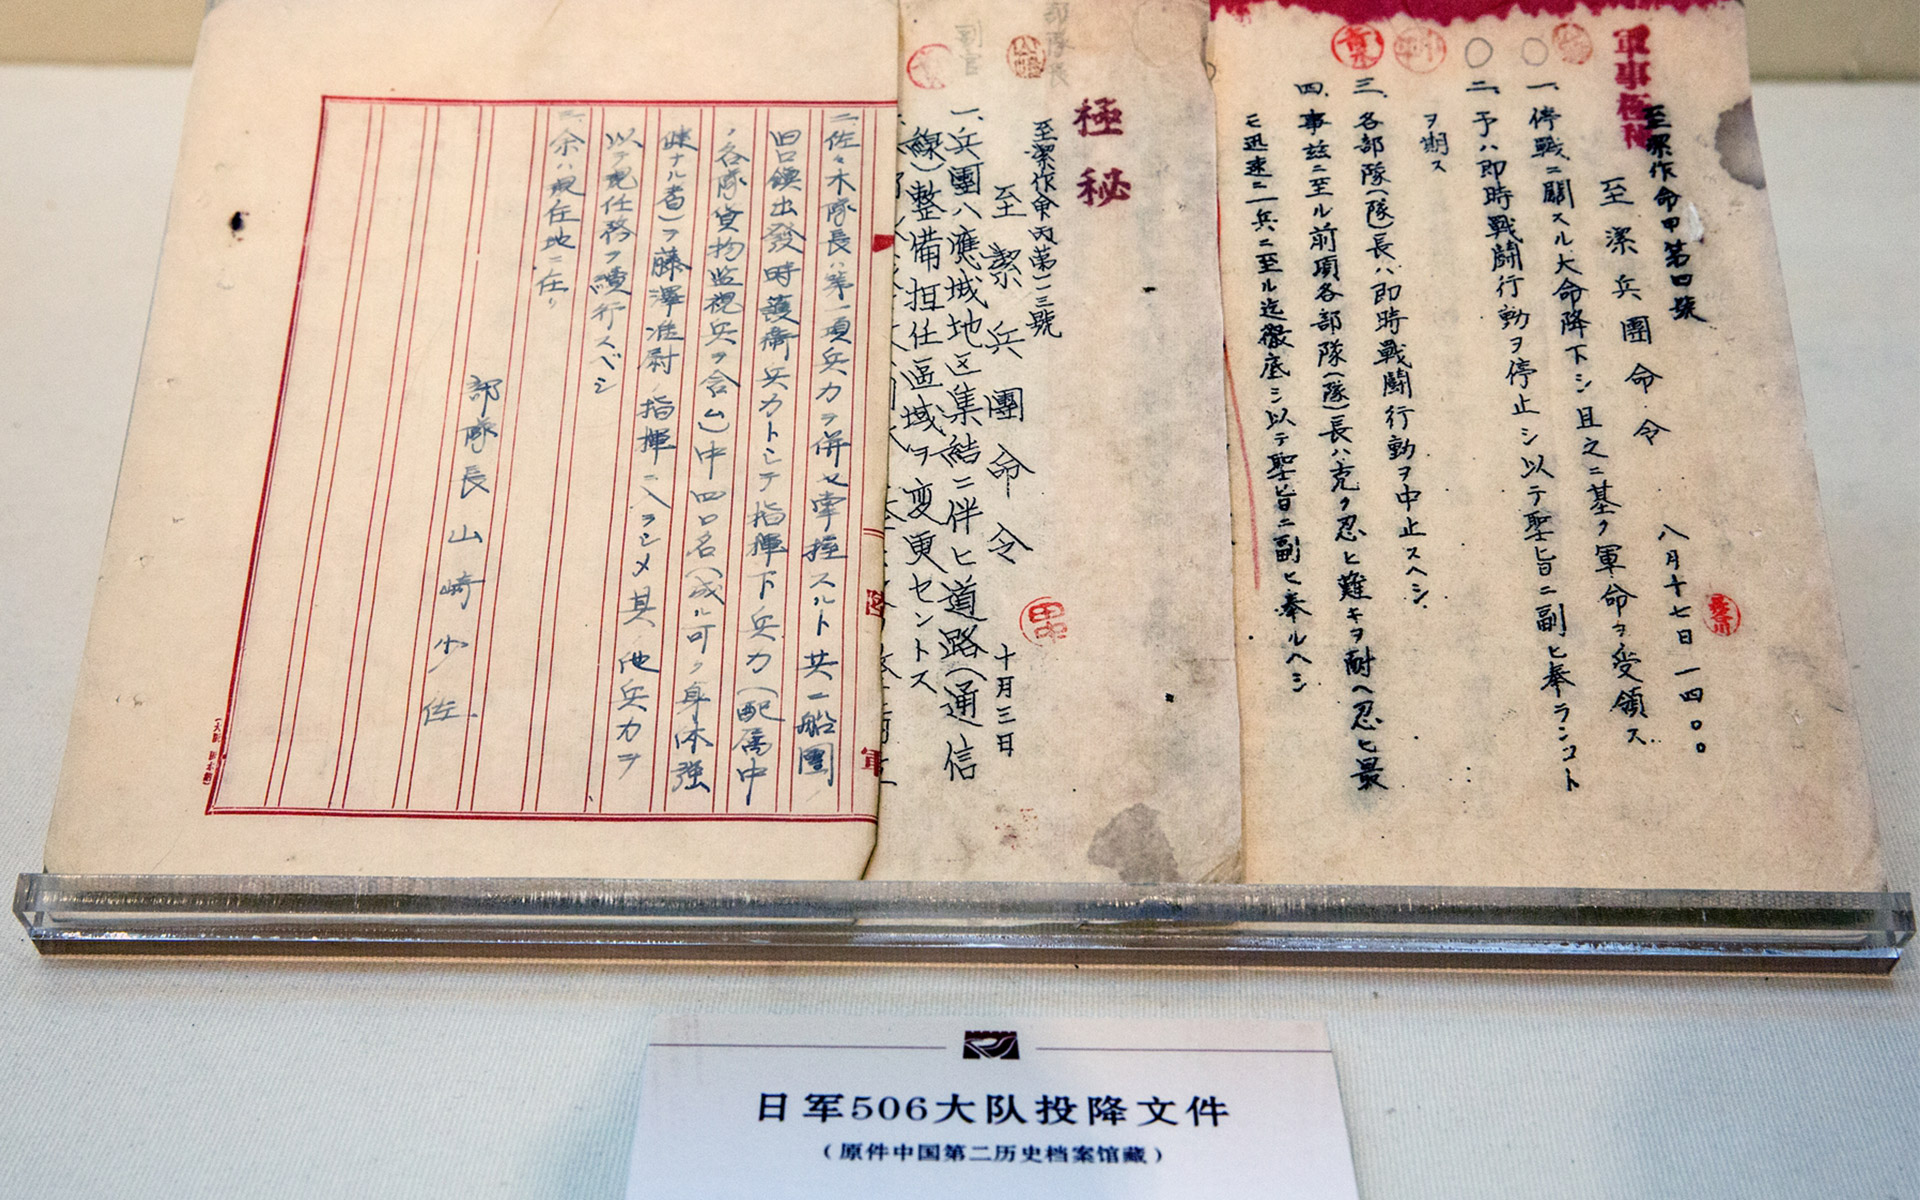 軍事極秘
至潔作命甲第四號
至潔兵團命令
八月十七日一四〇〇
長谷川
一、停戰ニ關スル大命降下シ且之ニ基ク軍命ヲ受領ス
二、予ハ即時戰鬪行動ヲ停止シ以テ聖旨ニ副ヒ奉ランコト
ヲ期ス
三、各部隊(隊)長ハ即時戰鬪行動ヲ中止スヘシ
四、事玆ニ至ル前項各部隊(隊)長ハ克ク忍ヒ難キヲ耐ヘ忍ヒ最
モ迅速ニ一兵ニ至ル迄徹底シ以テ聖旨ニ副ヒ奉ルヘシ
部隊長
副官
極秘
至潔作命丙第一三號
至潔兵團命令
十月三日
田中
一、兵團ハ應城地区集結ニ伴ヒ道路(通信
線)整備担任區域ヲ変更セントス
二、佐々木隊長ハ第一項兵力ヲ併セ掌握スルト共ニ船團
旧口鎮出發時護衛兵力トシテ指揮下兵力(配属中
ノ各隊貨物监視兵ヲ含ム)中四〇名(成ル可ク身体強
健ナル者)ヲ藤澤准尉ノ指揮ニ入ラシメ其ノ他兵力ヲ
以テ現任務ヲ續行スベシ
三、余ハ現在地ニ在リ
部隊長山崎少佐
軍
日军506大队投降文件
（原件中国第二历史档案馆藏）